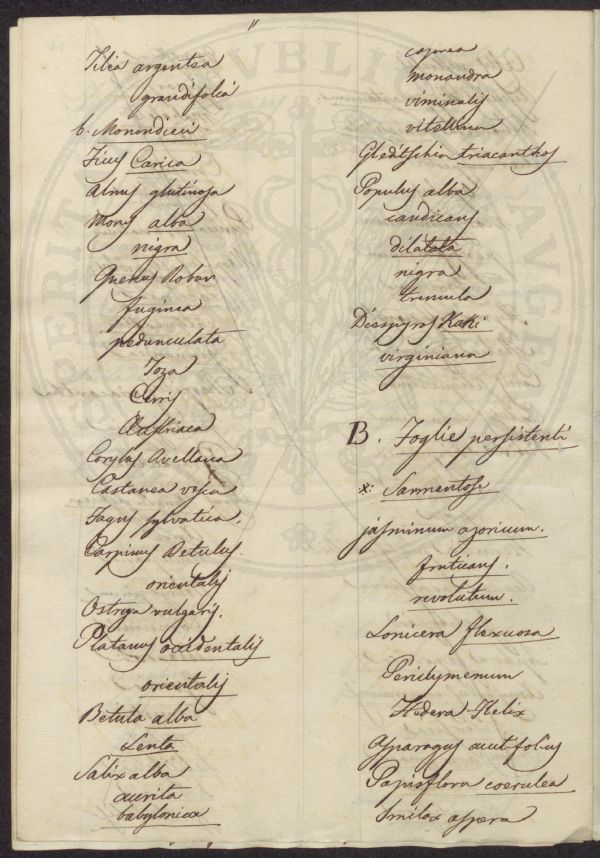 11
Tilia argentea
grandifolia
b. Monondieci
Ficus Carica
Alnus glutinosa
Morus alba
nigra
Quercus Robur
fuginea
pedunculata
Toza
Cerris
Austriaca
Corylus Avellana
Castanea vesca
Fagus sylvatica.
Carpinus Betulus.
orientalis
Ostrya vulgaris.
Platanus occidentalis
orientalis
Betula alba
Lenta
Salix alba
aurita
babylonica
caprea
monandra
viminalis
vitellina
Gleditschia triacanthos
Populus alba
candicans
dilatata
nigra
tremula
Diospyros Kaki
virginiana
B. Foglie persistenti
*: Sarmentose
jasminum azoricum.
fruticans.
revolutum.
Lonicera flexuosa
Periclymenum
Hedera Helix
Asparagus acutifolius
Papisflora coerulea
Smilax aspera